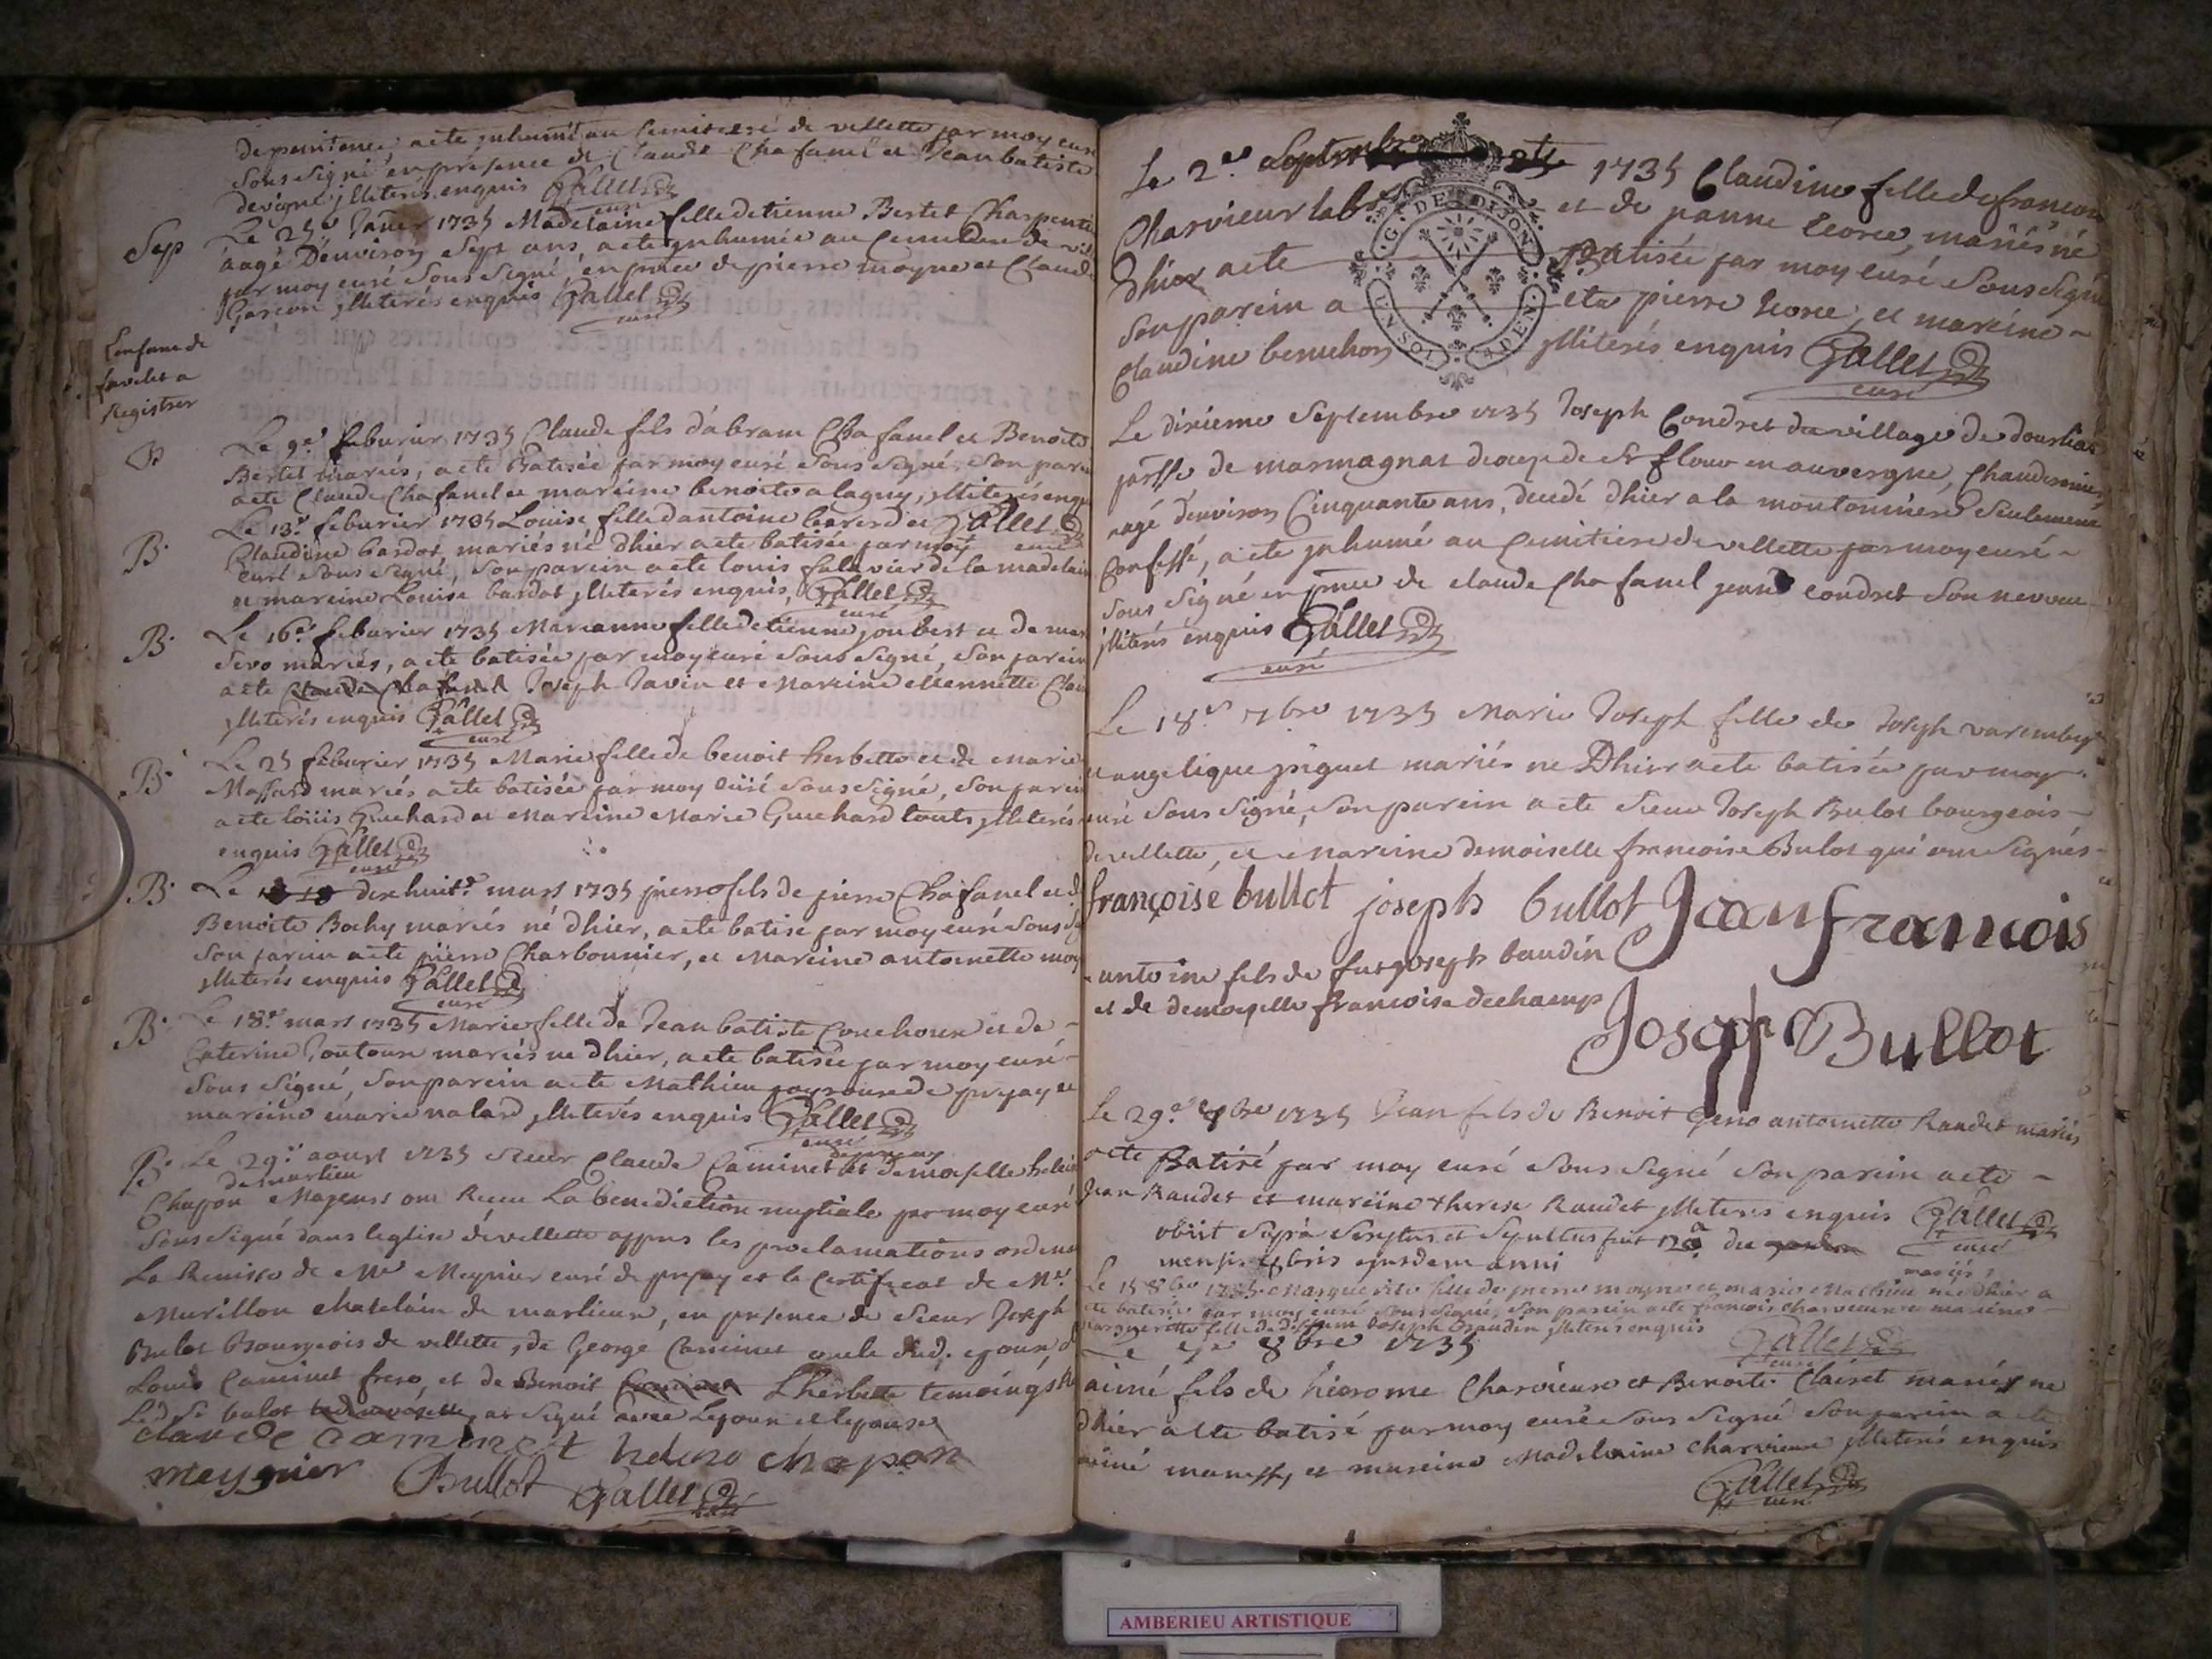 de penitence, a ete inhumé au Cemitiere de villette par moy curé
sous signé en presence de Claude Chafanel et Jean batiste
illiterés enquis Gallet
curé
Sep Le 25e Janer 1735 Madelaine fille detienne Bertet Charpentie
aagé Denviron Sept ans, a ete inhumée au Cemitiere de vil
par moy curé Sous Signé, en pnce de pierre moyne et Claud
Garçon illiterés enquis Gallet
curé
Lenfant de
favelet a
Registrer
B Le 9e feburier 1735 Claude fils d'abram Chafanel et Benoite
Bertet mariés, a ete Batisée par moy curé Sous Signé, Son parein
a ete Claude Chafanel et mareine benoite alagny, illiterés enqu
Gallet
curé
B. Le 13e feburier 1735 Louise fille d'antoine et
Claudine bardot, mariés né dhier a ete batisée par moy
curé Sous Signé, Son parein a ete louis falavier de la madelain
et mareine Louise bardot illiterés enquis, Gallet
curé
B. Le 16e feburier 1735 Marianne fille detienne joubert et de mar
Sevo mariés, a ete batisée par moy curé Sous Signé, Son parein
a ete Claude Chafanel Joseph Javin et Mareine
illiterés enquis Gallet
curé
B. Le 25 feburier 1735 Marie fille de benoit herbette et de Marie
Massard mariés a ete batisée par moy curé Sous Signé, Son parei
a ete loüis Guichard et Mareine Marie Guichard touts illiterés
enquis Gallet
curé
B. Le 18 dixhuite mars 1735 pierre fils de pierre Chafanel et d
Benoite Bochy mariés né dhier, a ete batisé par moy curé Sous Sg
Son parein a ete pierre Charbonnier, et Mareine antoinette moy
illiterés enquis Gallet
curé
B. Le 18e mars 1735 Marie fille de Jean batiste Couchoux et de
Caterine Toutoux mariés né dhier, a ete batisée par moy curé
Sous Signé, Son parein a ete Mathieu de priay et
mareine marie nalard illiterés enquis Gallet
curé
de priay
Le 29e aoust 1735 Sieur Claude Caminet et demoiselle helein
de marlieu
Chapon Majeurs ont Receu La benediction nuptiale par moy curé
Sous Signé dans leglise de villette appres les proclamations ordina
La Remisse de Mre Meynier curé de priay et le Certificat de Mr.
Murillon chatelain de marlieux, en presence de Sieur Joseph
Bulot Bourgeois de villette, de George Caminet oncle dud. epoux, d
Louis Caminet frere, et de Benoit Caminet Lherbette temoings
Led. Sr bulot a Signé avec Lepoux et lepouse
claude caminet helene chapon
meynier Bullot Gallet
curé
Le 2e Septembre 1735 Claudine fille de francois
Charvieux labr et de janne Corce, mariés né
Dhier a ete Batisée par moy curé Sous Signé
Son parein a ete pierre Corce, et mareine
Claudine benuchon illiterés enquis Gallet
curé
G. DE DIJON
UN SOL
Le dixieme Septembre 1735 Joseph Condret du village de
parsse de marmagnat diocese de St flour en auvergne, Chaudronnier
aagé denviron Cinquante ans, decedé dhier a la moutonniere Seulement
Confessé, a ete inhumé au Cemitiere de villette par moy curé
sous Signé en pnce de claude Chafanel condret Son neveu
illiterés enquis Gallet
curé
Le 18e 7bre 1735 Marie Joseph fille de Joseph varembey
et angelique piguet mariés né Dhier a ete batisée par moy
curé Sous Signé, Son parein a ete Sieur Joseph Bulot bourgeois
de villette, et mareine demoiselle francoise Bulot qui ont Signés
françoise bullot joseph bullot Jean francois
antoine fils de fut joseph baudin
et de demoyselle francoise dechamp
Joseph Bullot
Le 29e 7bre 1735 Jean fils de Benoit antoinette Raudet mariés
a ete Batisé par moy curé Sous Signé Son parein a ete
Jean Raudet et mareine therese Raudet illiterés enquis Gallet
curé
obiit Suprà Scriptus et Sepultus fuit 12a die
mensis 8bris ejusdem anni
mariés
Le 15 8bre 1735 Marguerite fille de pierre moyne et marie Mathieu né dhier a
ete batisée par moy curé Sous Signé, Son parein a ete francois charvieux et mareine
margueritte fille de deffunt Joseph Baudin illiterés enquis Gallet
curé
Le 8bre 1735
aimé fils de hierome Charvieux et Benoite Clairet mariés né
dhier a ete batisé par moy curé Sous Signé Son parein a ete
aimé et mareine Madelaine Charvieux illiterés enquis
Gallet
curé
AMBERIEU ARTISTIQUE